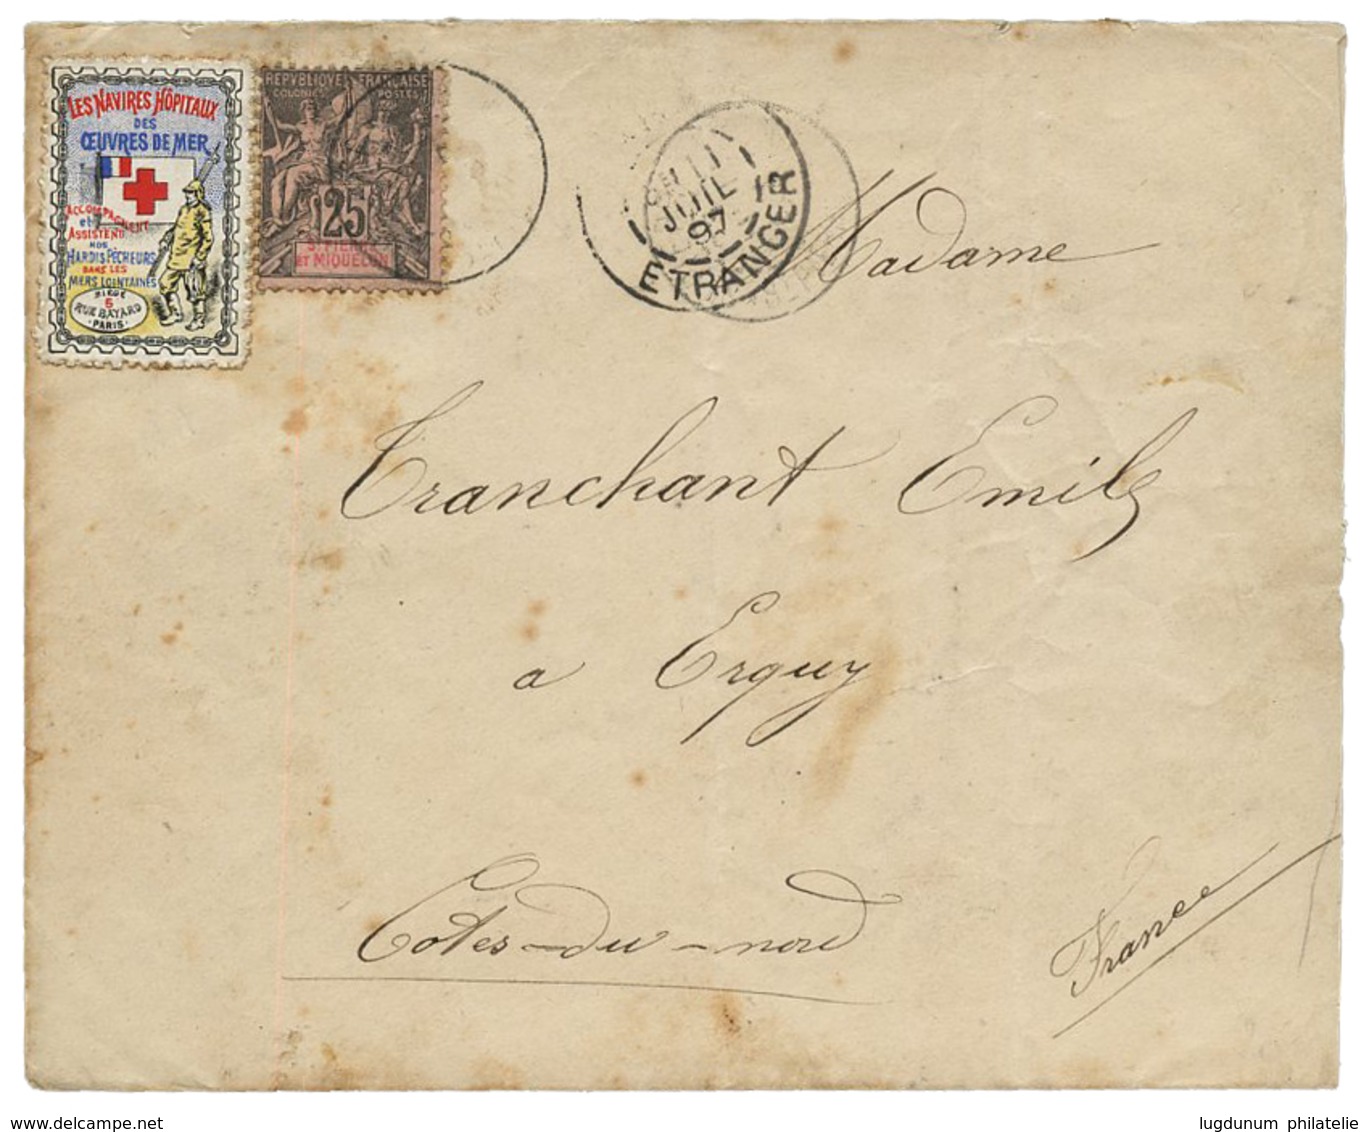 LES NAVIRES HÔPITAUX
DES
ŒUVRES DE MER
ACCOMPAGNENT
et
ASSISTENT
NOS
HARDIS PÊCHEURS
DANS LES
MERS LOINTAINES
SIEGE
5
RUE BAYARD
·PARIS·
REPVBLIQVE FRANÇAISE
COLONIES POSTES
25
ST PIERRE
et MIQUELON
11
JUIL
97
ETRANGER
Madame
Tranchant Emile
a Erquy
Côtes-du-nord
France
lugdunum philatelie
www.delcampe.net